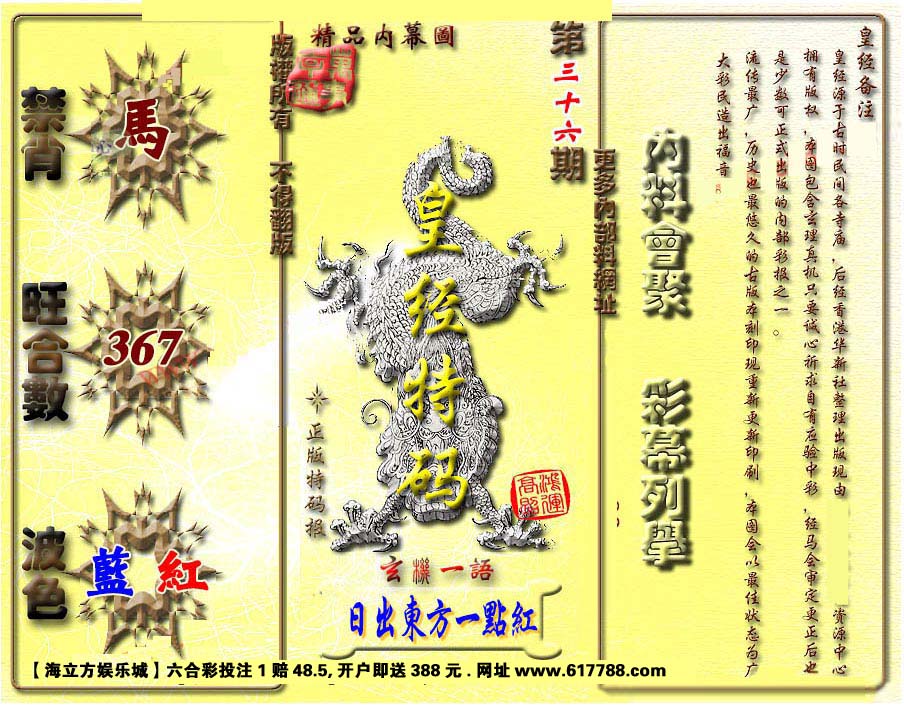 禁肖
馬
旺合數
367
波色
藍 紅
版權所有 不得翻版
精品内幕圖
第三十六期
皇经特码
正版特码报
鴻運
高照
玄機一語
日出東方一點紅
更多内部料網址
内料會聚 彩幕列舉
皇经备注
皇经源于古时民间各寺庙,后经香港华新社整理出版现由 资源中心
拥有版权,本图包含玄理真机只要诚心祈求自有应验中彩,经马会审定更正后也
是少数可正式出版的内部彩报之一。
流传最广,历史也最悠久的古版本刻印现重新更新印刷,本图会以最佳状态为广
大彩民造出福音。
【海立方娱乐城】六合彩投注 1 赔 48.5, 开户即送 388 元 . 网址 www.617788.com